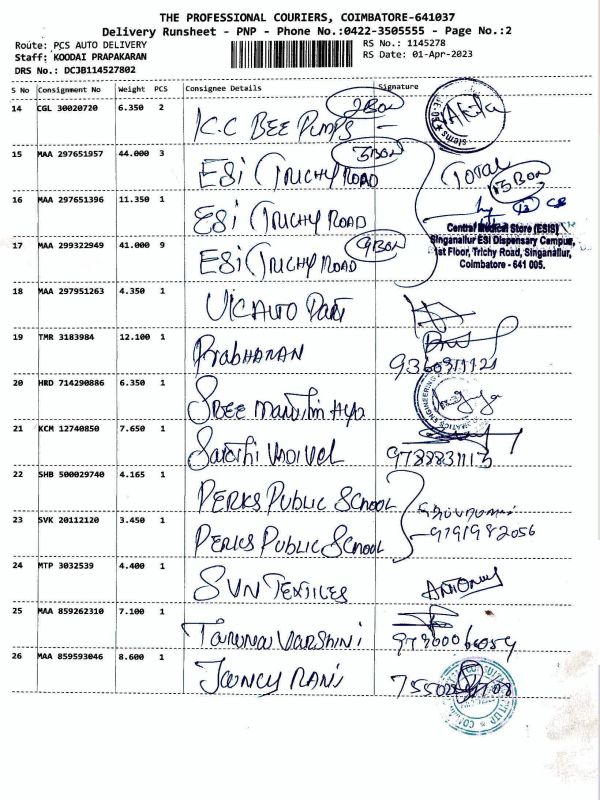 THE PROFESSIONAL COURIERS, COIMBATORE-641037
Delivery Runsheet - PNP - Phone No.:0422-3505555 - Page No.:2
Route: PCS AUTO DELIVERY
RS No.: 1145278
Staff: KOODAI PRAPAKARAN
RS Date: 01-Apr-2023
DRS No.: DCJB114527802
S No Consignment No Weight PCS Consignee Details Signature
14 CGL 30020720 6.350 2 K.C BEE PUMPS 2BOX
15 MAA 297651957 44.000 3 ESI (TRICHY ROAD 3BOX
TOTAL
13BOX
16 MAA 297651396 11.350 1 ESI (TRICHY ROAD
17 MAA 299322949 41.000 9 ESI (TRICHY ROAD 9BOX
Central Medical Store (ESIS)
Singanallur ESI Dispensary Campus,
1st Floor, Trichy Road, Singanallur,
Coimbatore - 641 005.
18 MAA 297951263 4.350 1 VIC AUTO PART
19 TMR 3183984 12.100 1 Prabharan
20 HRD 714290886 6.350 1 SREE
21 KCM 12740850 7.650 1 Sakthi
22 SHB 500029740 4.165 1 PERKS PUBLIC SCHOOL
23 SVK 20112120 3.450 1 PERKS PUBLIC SCHOOL
9791982056
24 MTP 3032539 4.400 1 SVN TEXTILES ANTONY
25 MAA 859262310 7.100 1 TARUNA VARSHINI
26 MAA 859593046 8.600 1 JOINCY RANI